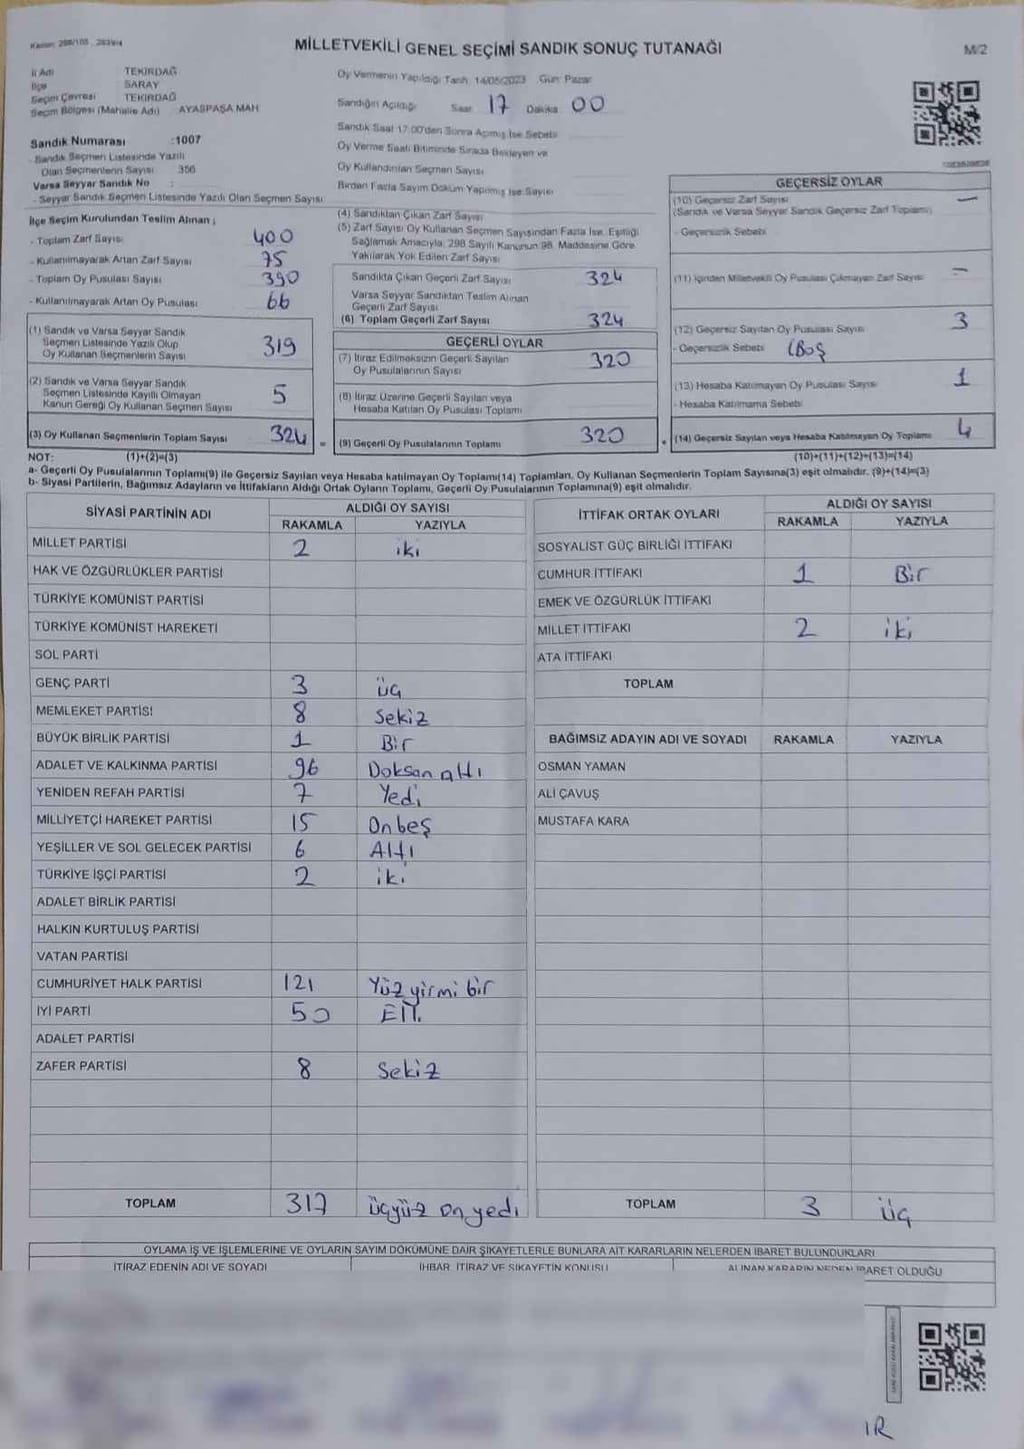 MİLLETVEKİLİ GENEL SEÇİMİ SANDIK SONUÇ TUTANAĞI
M/2
İl Adı TEKİRDAĞ
İlçe SARAY
Seçim Çevresi TEKİRDAĞ
Seçim Bölgesi (Mahalle Adı) AYASPAŞA MAH
Sandık Numarası :1007
- Sandık Seçmen Listesinde Yazılı
Olan Seçmenlerin Sayısı 356
Varsa Seyyar Sandık No :
- Seyyar Sandık Seçmen Listesinde Yazılı Olan Seçmen Sayısı
Oy Vermenin Yapıldığı Tarih 14/05/2023 Gün Pazar
Sandığın Açıldığı Saat 17 Dakika 00
Sandık Saat 17:00'den Sonra Açılmış İse Sebebi
Oy Verme Saati Bitiminde Sırada Bekleyen ve
Oy Kullandırılan Seçmen Sayısı
Birden Fazla Sayım Döküm Yapılmış İse Sayısı
İlçe Seçim Kurulundan Teslim Alınan ;
- Toplam Zarf Sayısı 400
- Kullanılmayarak Artan Zarf Sayısı 75
- Toplam Oy Pusulası Sayısı 390
- Kullanılmayarak Artan Oy Pusulası 66
(1) Sandık ve Varsa Seyyar Sandık
Seçmen Listesinde Yazılı Olup
Oy Kullanan Seçmenlerin Sayısı 319
(2) Sandık ve Varsa Seyyar Sandık
Seçmen Listesinde Kayıtlı Olmayan
Kanun Gereği Oy Kullanan Seçmen Sayısı 5
(3) Oy Kullanan Seçmenlerin Toplam Sayısı 324 =
(4) Sandıktan Çıkan Zarf Sayısı
(5) Zarf Sayısı Oy Kullanan Seçmen Sayısından Fazla İse, Eşitliği
Sağlamak Amacıyla; 298 Sayılı Kanunun 98. Maddesine Göre
Yakılarak Yok Edilen Zarf Sayısı
Sandıkta Çıkan Geçerli Zarf Sayısı 324
Varsa Seyyar Sandıktan Teslim Alınan
Geçerli Zarf Sayısı
(6) Toplam Geçerli Zarf Sayısı 324
GEÇERLİ OYLAR
(7) İtiraz Edilmeksizin Geçerli Sayılan
Oy Pusulalarının Sayısı 320
(8) İtiraz Üzerine Geçerli Sayılan veya
Hesaba Katılan Oy Pusulası Toplamı
(9) Geçerli Oy Pusulalarının Toplamı 320 +
GEÇERSİZ OYLAR
(10) Geçersiz Zarf Sayısı —
(Sandık ve Varsa Seyyar Sandık Geçersiz Zarf Toplamı)
- Geçersizlik Sebebi
(11) İçinden Milletvekili Oy Pusulası Çıkmayan Zarf Sayısı —
(12) Geçersiz Sayılan Oy Pusulası Sayısı 3
- Geçersizlik Sebebi Boş
(13) Hesaba Katılmayan Oy Pusulası Sayısı 1
- Hesaba Katılmama Sebebi
(14) Geçersiz Sayılan veya Hesaba Katılmayan Oy Toplamı 4
NOT: (1)+(2)=(3) (10)+(11)+(12)+(13)=(14)
a- Geçerli Oy Pusulalarının Toplamı(9) ile Geçersiz Sayılan veya Hesaba katılmayan Oy Toplamı(14) Toplamları, Oy Kullanan Seçmenlerin Toplam Sayısına(3) eşit olmalıdır. (9)+(14)=(3)
b- Siyasi Partilerin, Bağımsız Adayların ve İttifakların Aldığı Ortak Oyların Toplamı, Geçerli Oy Pusulalarının Toplamına(9) eşit olmalıdır.
SİYASİ PARTİNİN ADI ALDIĞI OY SAYISI
RAKAMLA YAZIYLA
MİLLET PARTİSİ 2 iki
HAK VE ÖZGÜRLÜKLER PARTİSİ
TÜRKİYE KOMÜNİST PARTİSİ
TÜRKİYE KOMÜNİST HAREKETİ
SOL PARTİ
GENÇ PARTİ 3 üç
MEMLEKET PARTİSİ 8 Sekiz
BÜYÜK BİRLİK PARTİSİ 1 Bir
ADALET VE KALKINMA PARTİSİ 96 Doksan altı
YENİDEN REFAH PARTİSİ 7 Yedi
MİLLİYETÇİ HAREKET PARTİSİ 15 Onbeş
YEŞİLLER VE SOL GELECEK PARTİSİ 6 Altı
TÜRKİYE İŞÇİ PARTİSİ 2 iki
ADALET BİRLİK PARTİSİ
HALKIN KURTULUŞ PARTİSİ
VATAN PARTİSİ
CUMHURİYET HALK PARTİSİ 121 Yüz yirmi bir
İYİ PARTİ 50 Elli
ADALET PARTİSİ
ZAFER PARTİSİ 8 Sekiz
TOPLAM 317 üçyüz onyedi
İTTİFAK ORTAK OYLARI ALDIĞI OY SAYISI
RAKAMLA YAZIYLA
SOSYALİST GÜÇ BİRLİĞİ İTTİFAKI
CUMHUR İTTİFAKI 1 Bir
EMEK VE ÖZGÜRLÜK İTTİFAKI
MİLLET İTTİFAKI 2 iki
ATA İTTİFAKI
TOPLAM
BAĞIMSIZ ADAYIN ADI VE SOYADI RAKAMLA YAZIYLA
OSMAN YAMAN
ALİ ÇAVUŞ
MUSTAFA KARA
TOPLAM 3 üç
OYLAMA İŞ VE İŞLEMLERİNE VE OYLARIN SAYIM DÖKÜMÜNE DAİR ŞİKAYETLERLE BUNLARA AİT KARARLARIN NELERDEN İBARET BULUNDUKLARI
İTİRAZ EDENİN ADI VE SOYADI İHBAR, İTİRAZ VE ŞİKAYETİN KONUSU ALINAN KARARIN NEDEN İBARET OLDUĞU
IR